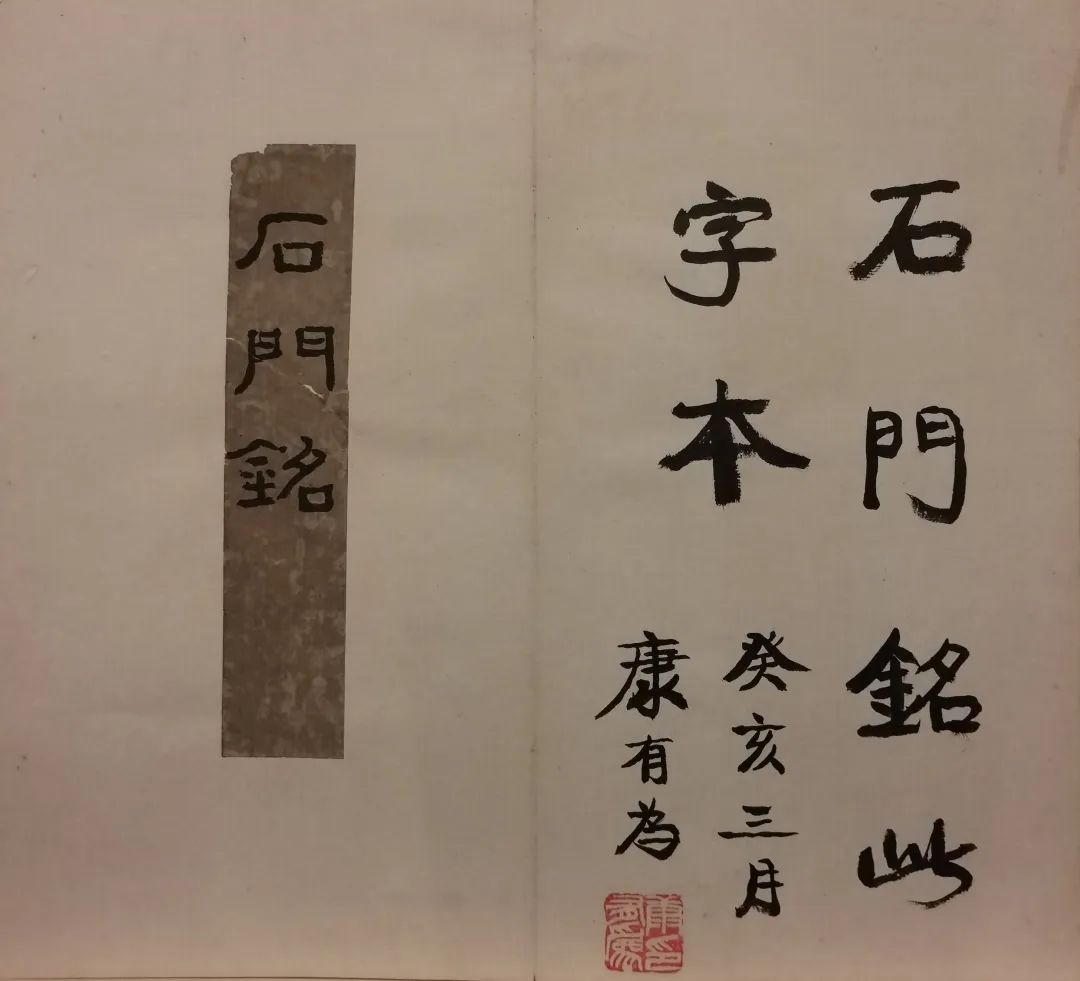 石門銘此
字本
癸亥三月
康有為
康印有為
石門銘